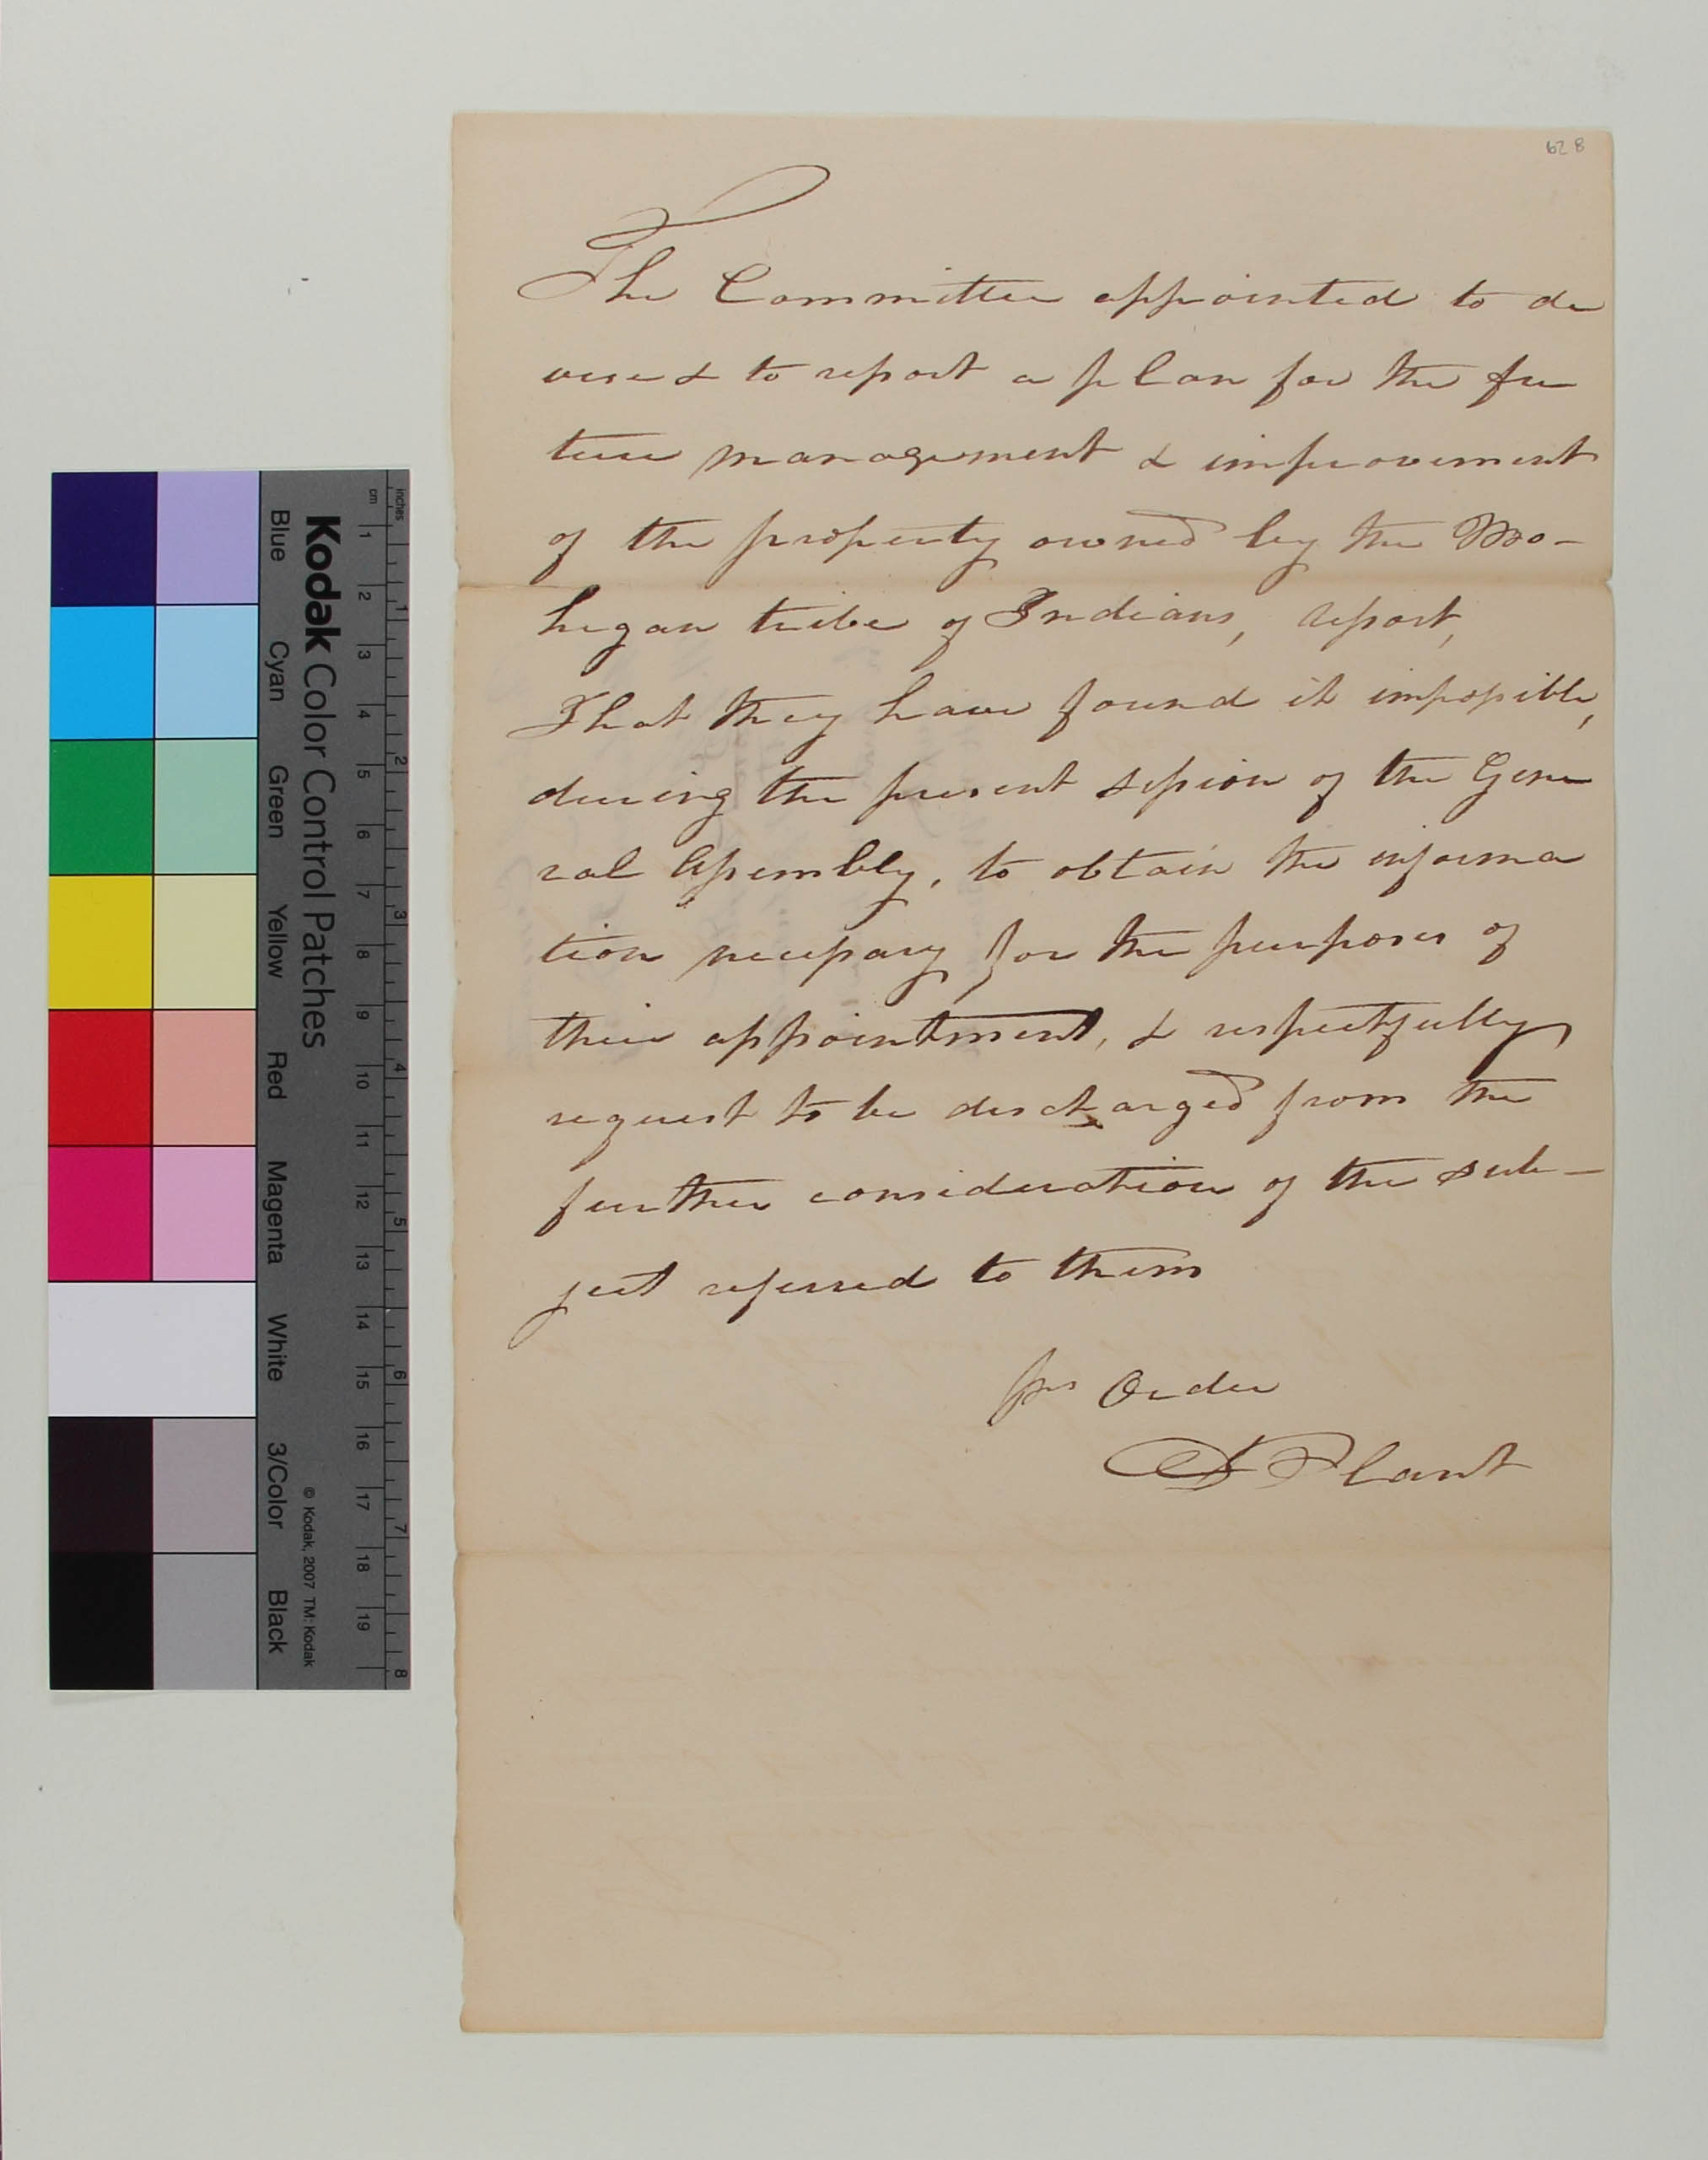 62 8
The Committee appointed to de
vise & to report a plan for the fu
ture management & improvement
of the property owned by the Mo-
hegan tribe of Indians, report,
That they have found it impossible,
during the present session of the Gene
ral Assembly, to obtain the informa
tion necessary for the purposes of
their appointment, & respectfully
request to be discharged from the
further consideration of the sub-
ject referred to them
per Order
D Plant
Kodak Color Control Patches
© Kodak, 2007 TM: Kodak
Blue Cyan Green Yellow Red Magenta White 3/Color Black
cm 1 2 3 4 5 6 7 8 9 10 11 12 13 14 15 16 17 18 19
inches 1 2 3 4 5 6 7 8